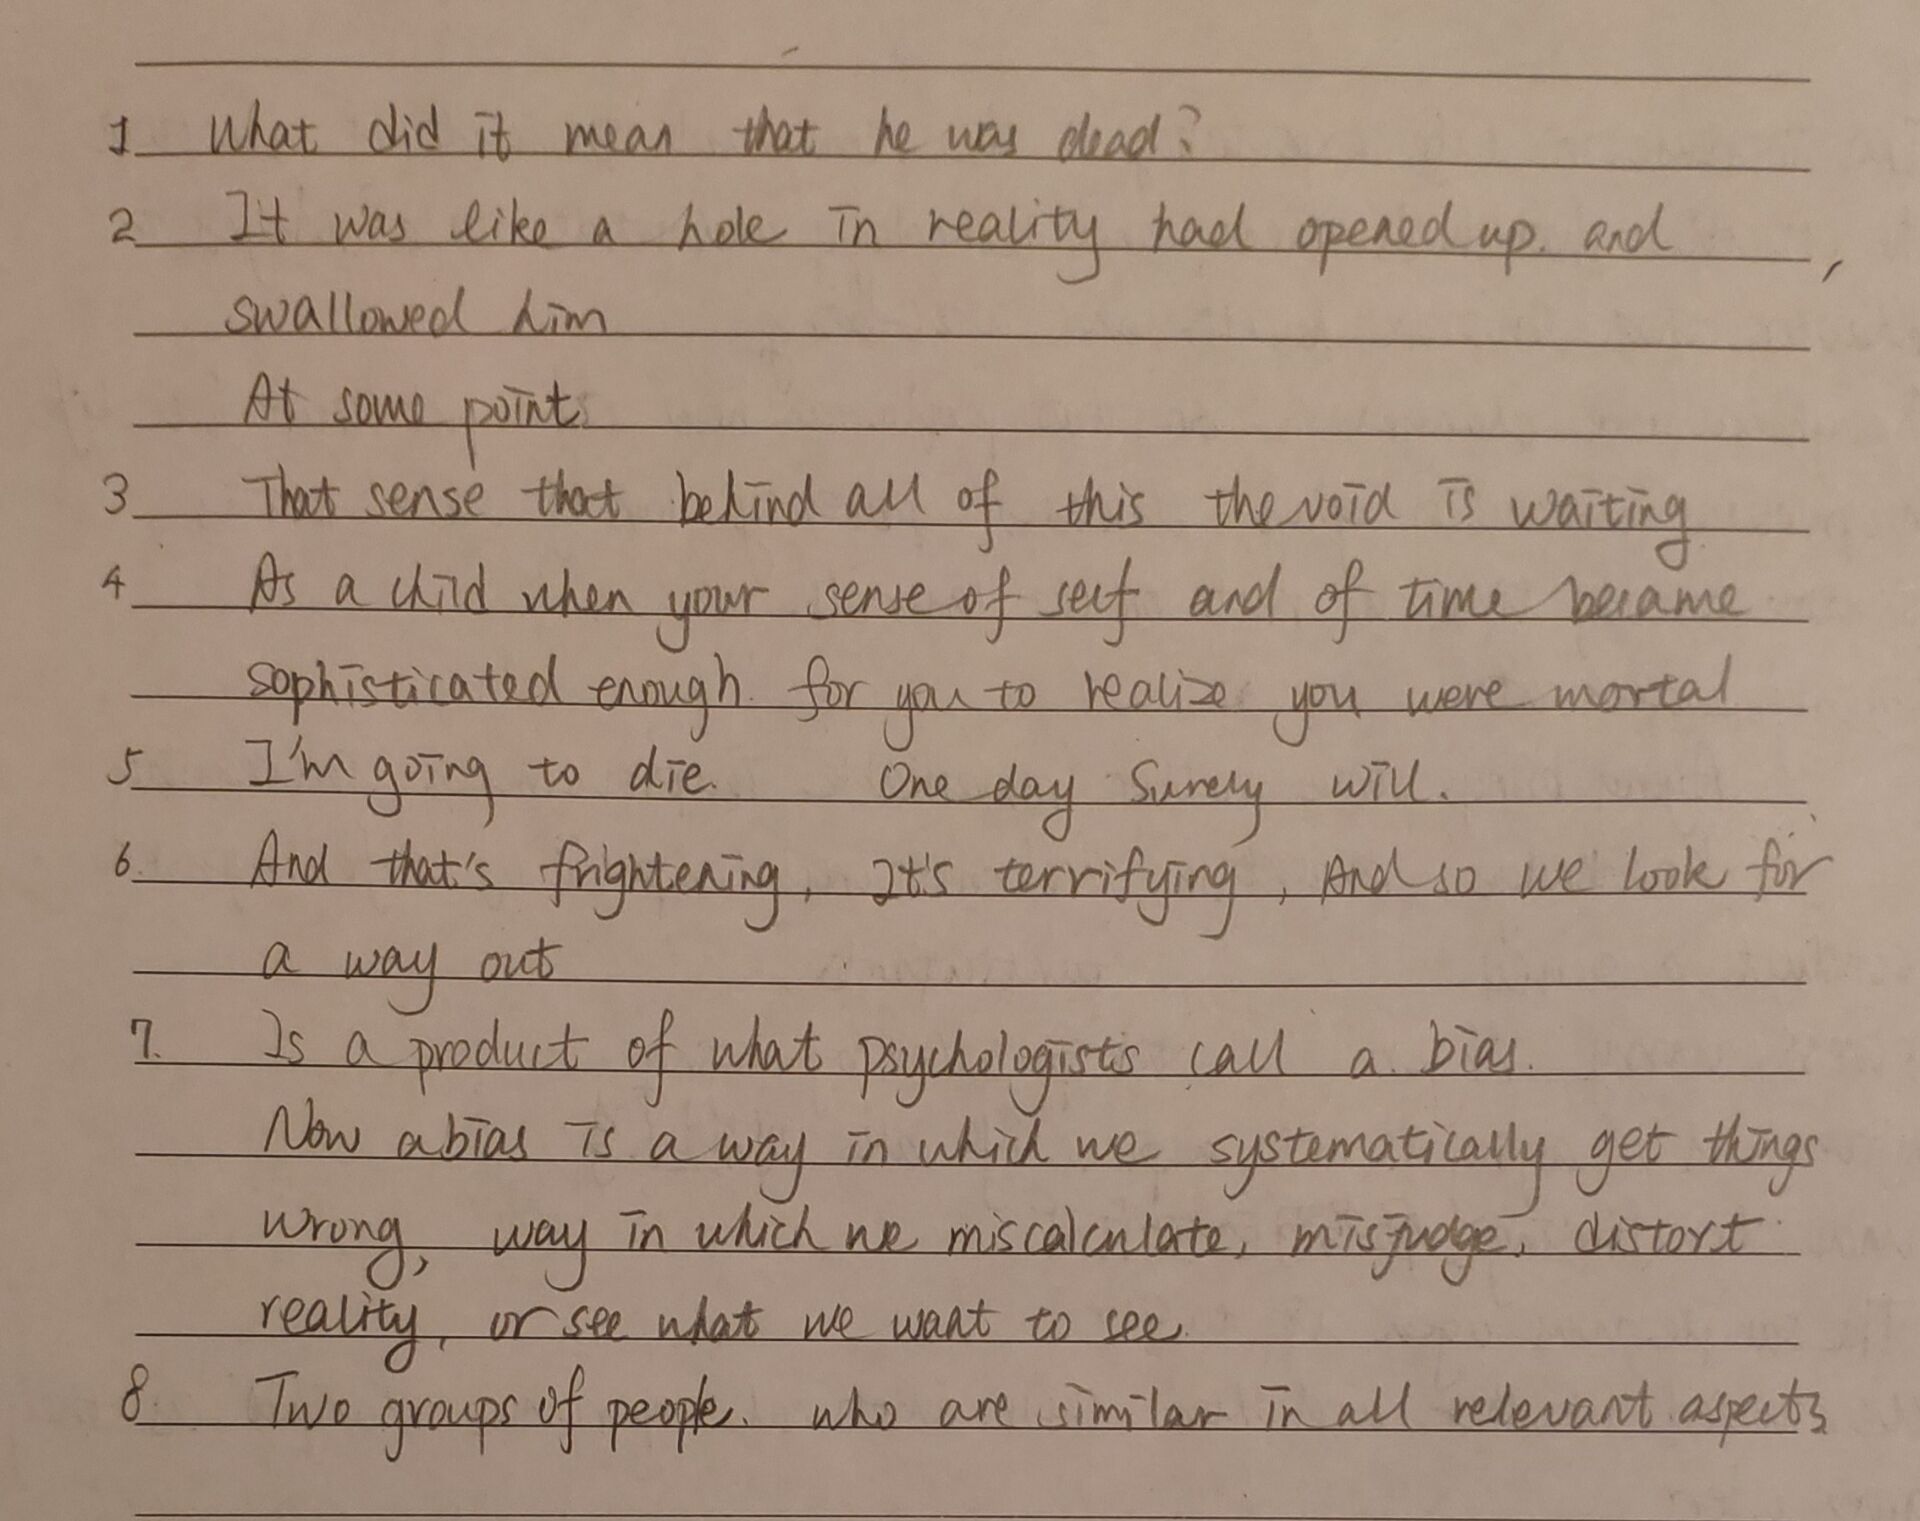 1 What did it mean that he was dead?
2 It was like a hole in reality had opened up. and
swallowed him
At some point
3 That sense that behind all of this the void is waiting
4 As a child when your sense of self and of time became
sophisticated enough. for you to realize you were mortal
5 I'm going to die. One day Surely will.
6. And that's frightening, It's terrifying, And so we look for
a way out
7. Is a product of what psychologists call a bias.
Now a bias is a way in which we systematically get things
wrong, way in which we miscalculate, misjudge, distort
reality, or see what we want to see
8. Two groups of people. who are similar in all relevant aspects